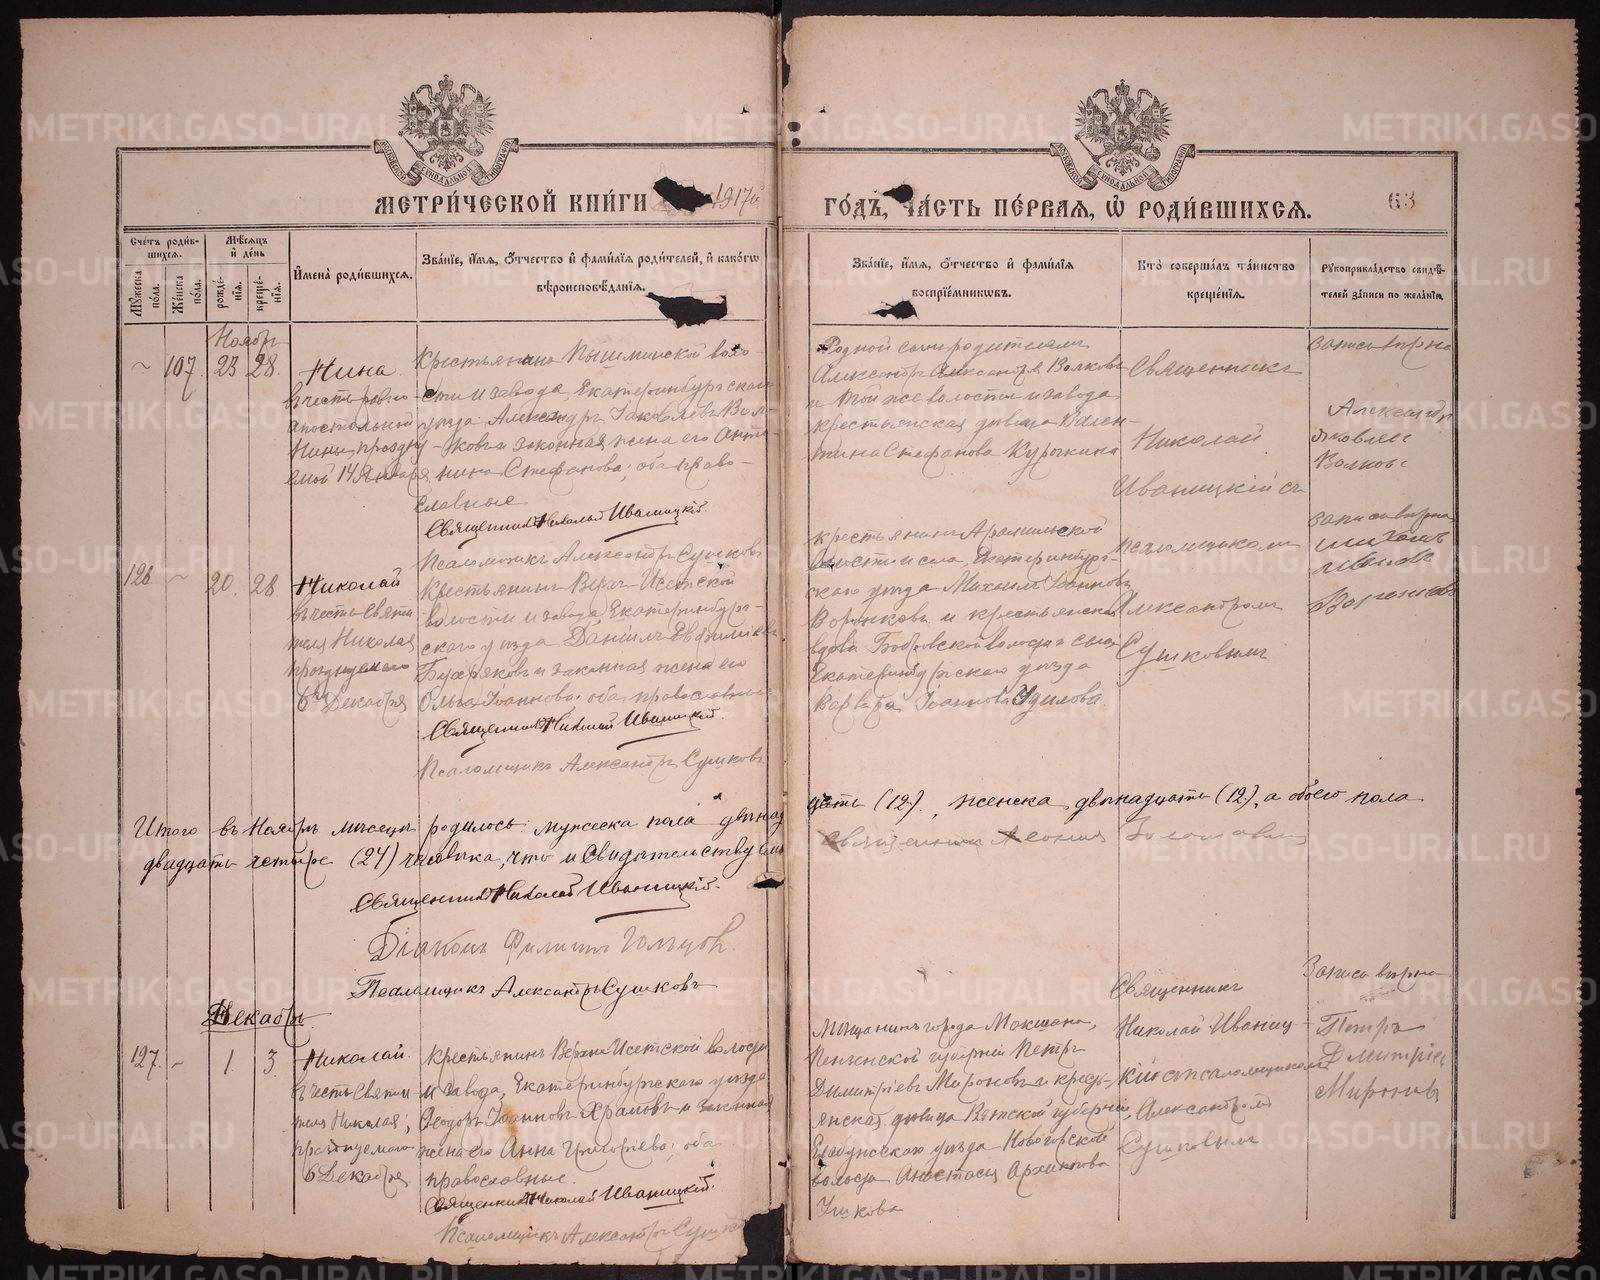 МЕТРИ́ЧЕСКОЙ КНИ́ГИ 1917 го
ГО́ДЪ, ЧА́СТЬ ПЕ́РВАЯ, Ѽ РОДИ́ВШИХСЯ. 63
Сче́тъ роди́вшихся.
Му́жеска по́ла.
Же́нска по́ла.
Мѣ́сяцъ и́ де́нь
рожде́нїя.
креще́нїя.
И҆мена̀ роди́вшихся.
Зва́нїе, и҆́мя, ѻ҆́тчество и҆ фами́лїя роди́телей, и҆ како́гѡ вѣроисповѣ́данїя.
Зва́нїе, и҆́мя, ѻ҆́тчество и҆ фами́лїя воспрїе́мникѡвъ.
Кто̀ соверша́лъ та́инство креще́нїя.
Рукоприкла́дство свидѣ́телей за́писи по жела́нїю.
Ноябрь
107. 23 28.
Нина
въ честь равно
апостольной
Нины празднуемой 14 Января
Крестьянинъ Пышминской воло-
сти и завода, Екатеринбургскаго
уѣзда Александръ Іаковлевъ Вол-
ковъ и законная жена его Анто-
нина Стефанова; оба право-
славные
Священникъ Николай Иваницкій.
Псаломщикъ Александръ Сушковъ
Родной сынъ родителямъ
Александръ Александровъ Волковъ
и той же волости и завода
крестьянская дѣвица Вален-
тина Стефанова Курочкина
Священникъ
Николай
Иваницкій съ
псаломщикомъ
Александромъ
Сушковымъ
Запись вѣрна
Александръ
Яковлевъ
Волковъ
126 ~ 20. 28
Николай
въ честь Святи
теля Николая
празднуемаго
6го Декабря
Крестьянинъ Верхъ-Исетской
волости и завода, Екатеринбург-
скаго уѣзда Даніилъ Евфиміевъ
Бухряковъ и законная жена его
Ольга Іоаннова; оба православные
Священникъ Николай Иваницкій.
Псаломщикъ Александръ Сушковъ.
крестьянинъ Арамильской
волости и села, Екатеринбург-
скаго уѣзда Михаилъ Іоанновъ
Воронковъ и крестьянская
вдова Бобровской волости и села
Екатеринбургскаго уѣзда
Варвара Іоаннова
Запись вѣрна
Михаилъ
Ивановъ
Воронковъ
Итого въ Ноябрѣ мѣсяцѣ родилось: мужеска пола двѣнад
цать (12), женска двѣнадцать (12), а обоего пола
двадцать четыре (24) человѣка, что и свидѣтельствуемъ
Священникъ Николай Иваницкій.
Діаконъ Филиппъ Гольцовъ.
Псаломщикъ Александръ Сушковъ
Декабрь.
127. ~ 1. 3.
Николай.
въ честь Святи
теля Николая;
празднуемаго
6 Декабря
Крестьянинъ Верхъ-Исетской волости
и завода, Екатеринбургскаго уѣзда
Ѳеодоръ Іоанновъ Храмовъ и законная
жена его Анна Григоріева; оба
православные.
Священникъ Николай Иваницкій.
Псаломщикъ Александръ Сушковъ
Мѣщанинъ города Мокшана,
Пензенской губерніи Петръ
Димитріевъ Мироновъ и кресть-
янская дѣвица Вятской губерніи,
Елабужскаго уѣзда
волости Анастасія Архиппова
Ушкова
Священникъ
Николай Иваниц-
кій съ псаломщикомъ
Александромъ
Сушковымъ
Запись вѣрна
Петръ
Дмитріевъ
Мироновъ
METRIKI.GASO-URAL.RU